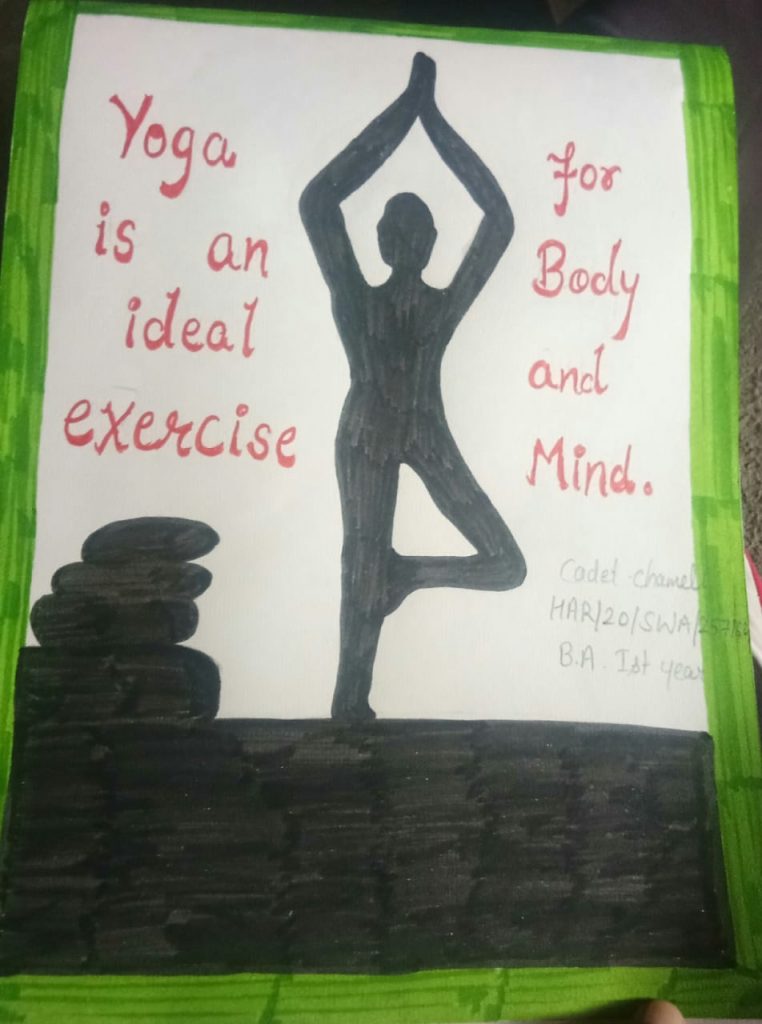 Yoga
is an
ideal
exercise
for
Body
and
Mind.
Cadet chameli
HAR/20/SWA/257
B.A. Ist year